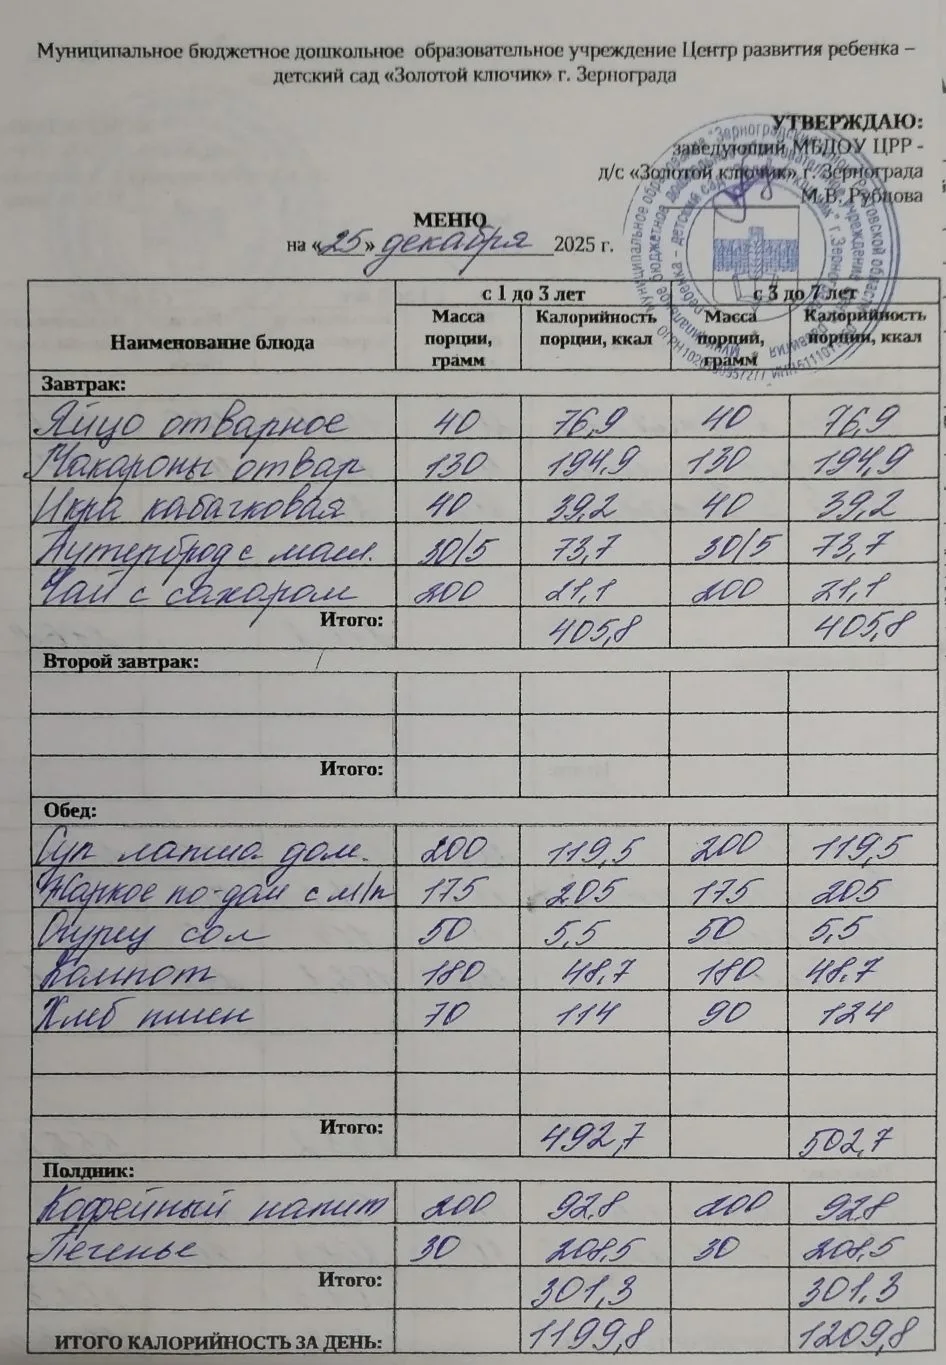 Муниципальное бюджетное дошкольное образовательное учреждение Центр развития ребенка –
детский сад «Золотой ключик» г. Зернограда
УТВЕРЖДАЮ:
заведующий МБДОУ ЦРР -
д/с «Золотой ключик» г. Зернограда
М.В. Рубцова
МЕНЮ
на «25» декабря 2025 г.
с 1 до 3 лет с 3 до 7 лет
Наименование блюда Масса порции, грамм Калорийность порции, ккал Масса порций, грамм Калорийность порции, ккал
Завтрак:
Яйцо отварное 40 76,9 40 76,9
Макароны отвар 130 194,9 130 194,9
Икра кабачковая 40 39,2 40 39,2
Бутерброд с масл. 30/5 73,7 30/5 73,7
Чай с сахаром 200 21,1 200 21,1
Итого: 405,8 405,8
Второй завтрак:
Итого:
Обед:
Суп лапша дом. 200 119,5 200 119,5
Жаркое по-дом с м/п 175 205 175 205
Огурец сол 50 5,5 50 5,5
Компот 180 48,7 180 48,7
Хлеб пшен 70 114 90 124
Итого: 492,7 502,7
Полдник:
Кофейный напит 200 92,8 200 92,8
Печенье 30 208,5 30 208,5
Итого: 301,3 301,3
ИТОГО КАЛОРИЙНОСТЬ ЗА ДЕНЬ: 1199,8 1209,8